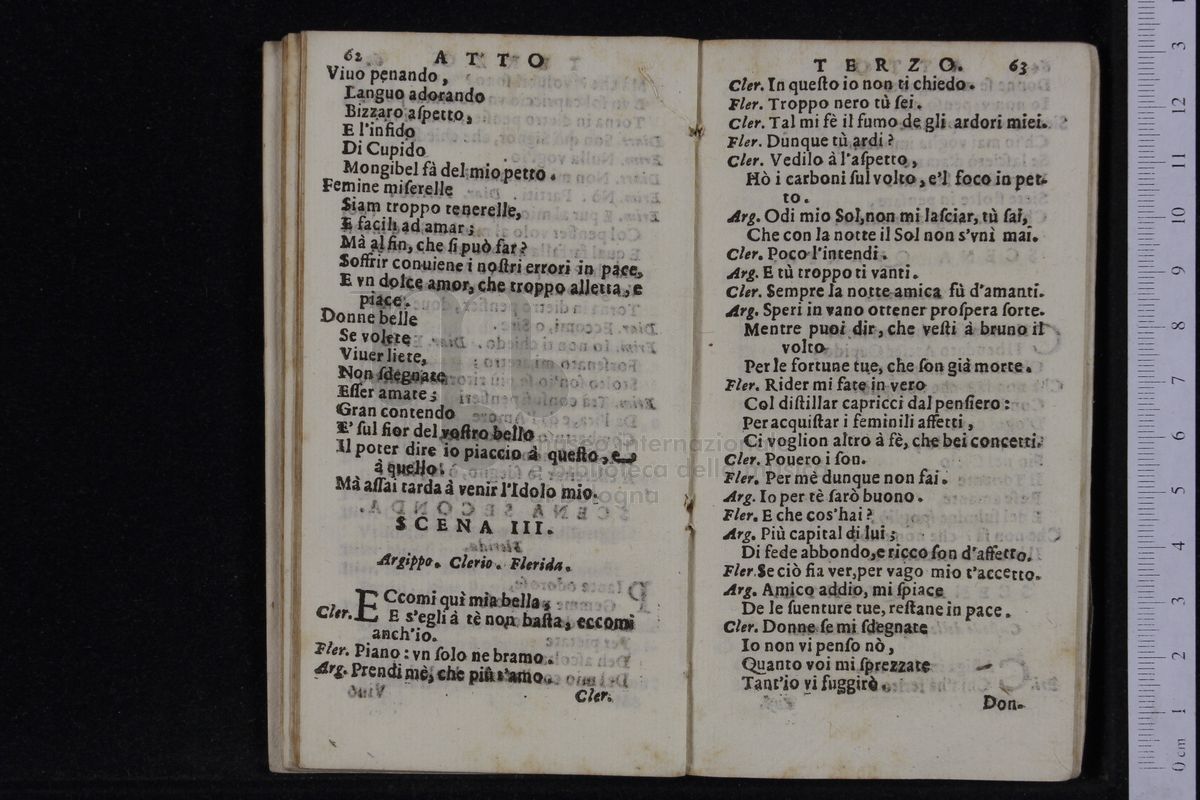 62 ATTO
Viuo penando,
Languo adorando
Bizzaro aſpetto,
E l'infido
Di Cupido
Mongibel fà del mio petto.
Femine miſerelle
Siam troppo tenerelle,
E facili ad amar;
Mà al fin, che ſi può far?
Soffrir conuiene i noſtri errori in pace,
E vn dolce amor, che troppo alletta, e
piace.
Donne belle
Se volete
Viuer liete,
Non ſdegnate
Eſſer amate;
Gran contendo
E' ſul fior del voſtro bello
Il poter dire io piaccio à queſto, e
à quello.
Mà aſſai tarda à venir l'Idolo mio.
SCENA III.
Argippo. Clerio. Flerida.
Cler. ECcomi quì mia bella,
E s'egli à tè non baſta, eccomi
anch'io.
Fler. Piano: vn ſolo ne bramo.
Arg. Prendi mè, che più t'amo.
Cler.
TERZO. 63
Cler. In queſto io non ti chiedo.
Fler. Troppo nero tù ſei.
Cler. Tal mi fè il fumo de gli ardori miei.
Fler. Dunque tù ardi?
Cler. Vedilo à l'aſpetto,
Hò i carboni ſul volto, e'l foco in pet-
to.
Arg. Odi mio Sol, non mi laſciar, tù ſai,
Che con la notte il Sol non s'vnì mai.
Cler. Poco l'intendi.
Arg. E tù troppo ti vanti.
Cler. Sempre la notte amica fù d'amanti.
Arg. Speri in vano ottener proſpera ſorte.
Mentre puoi dir, che veſti à bruno il
volto
Per le fortune tue, che ſon già morte.
Fler. Rider mi fate in vero
Col diſtillar capricci dal penſiero:
Per acquiſtar i feminili affetti,
Ci voglion altro à fè, che bei concetti.
Cler. Pouero i ſon.
Fler. Per mè dunque non fai.
Arg. Io per tè ſarò buono.
Fler. E che cos'hai?
Arg. Più capital di lui;
Di fede abbondo, e ricco ſon d'affetto.
Fler. Se ciò fia ver, per vago mio t'accetto.
Arg. Amico addio, mi ſpiace
De le ſuenture tue, reſtane in pace.
Cler. Donne ſe mi ſdegnate
Io non vi penſo nò,
Quanto voi mi ſprezzate
Tant'io vi fuggirò.
Don-